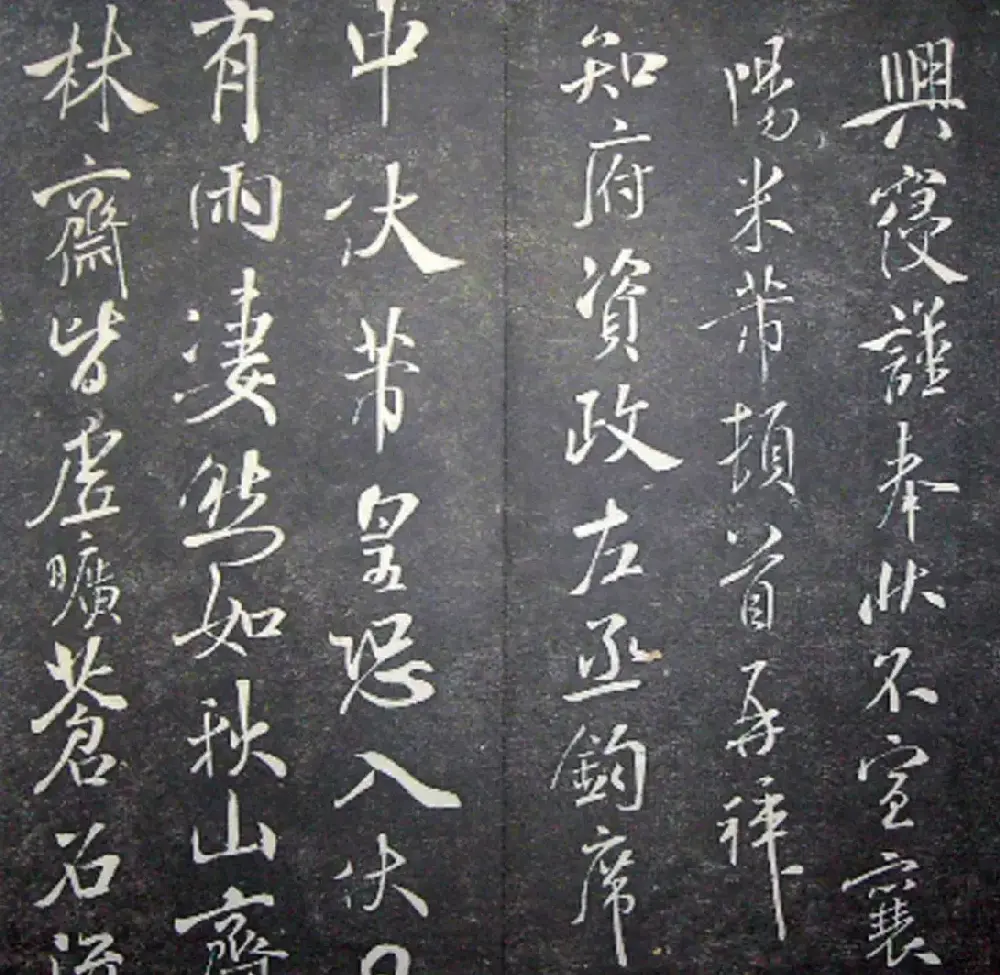 興寢謹奉狀不宣襄
陽米芾頓首再拜
知府資政左丞鈞席
中伏芾皇恐入伏日
有雨淒然如秋山齋
林齋皆虛曠蒼石